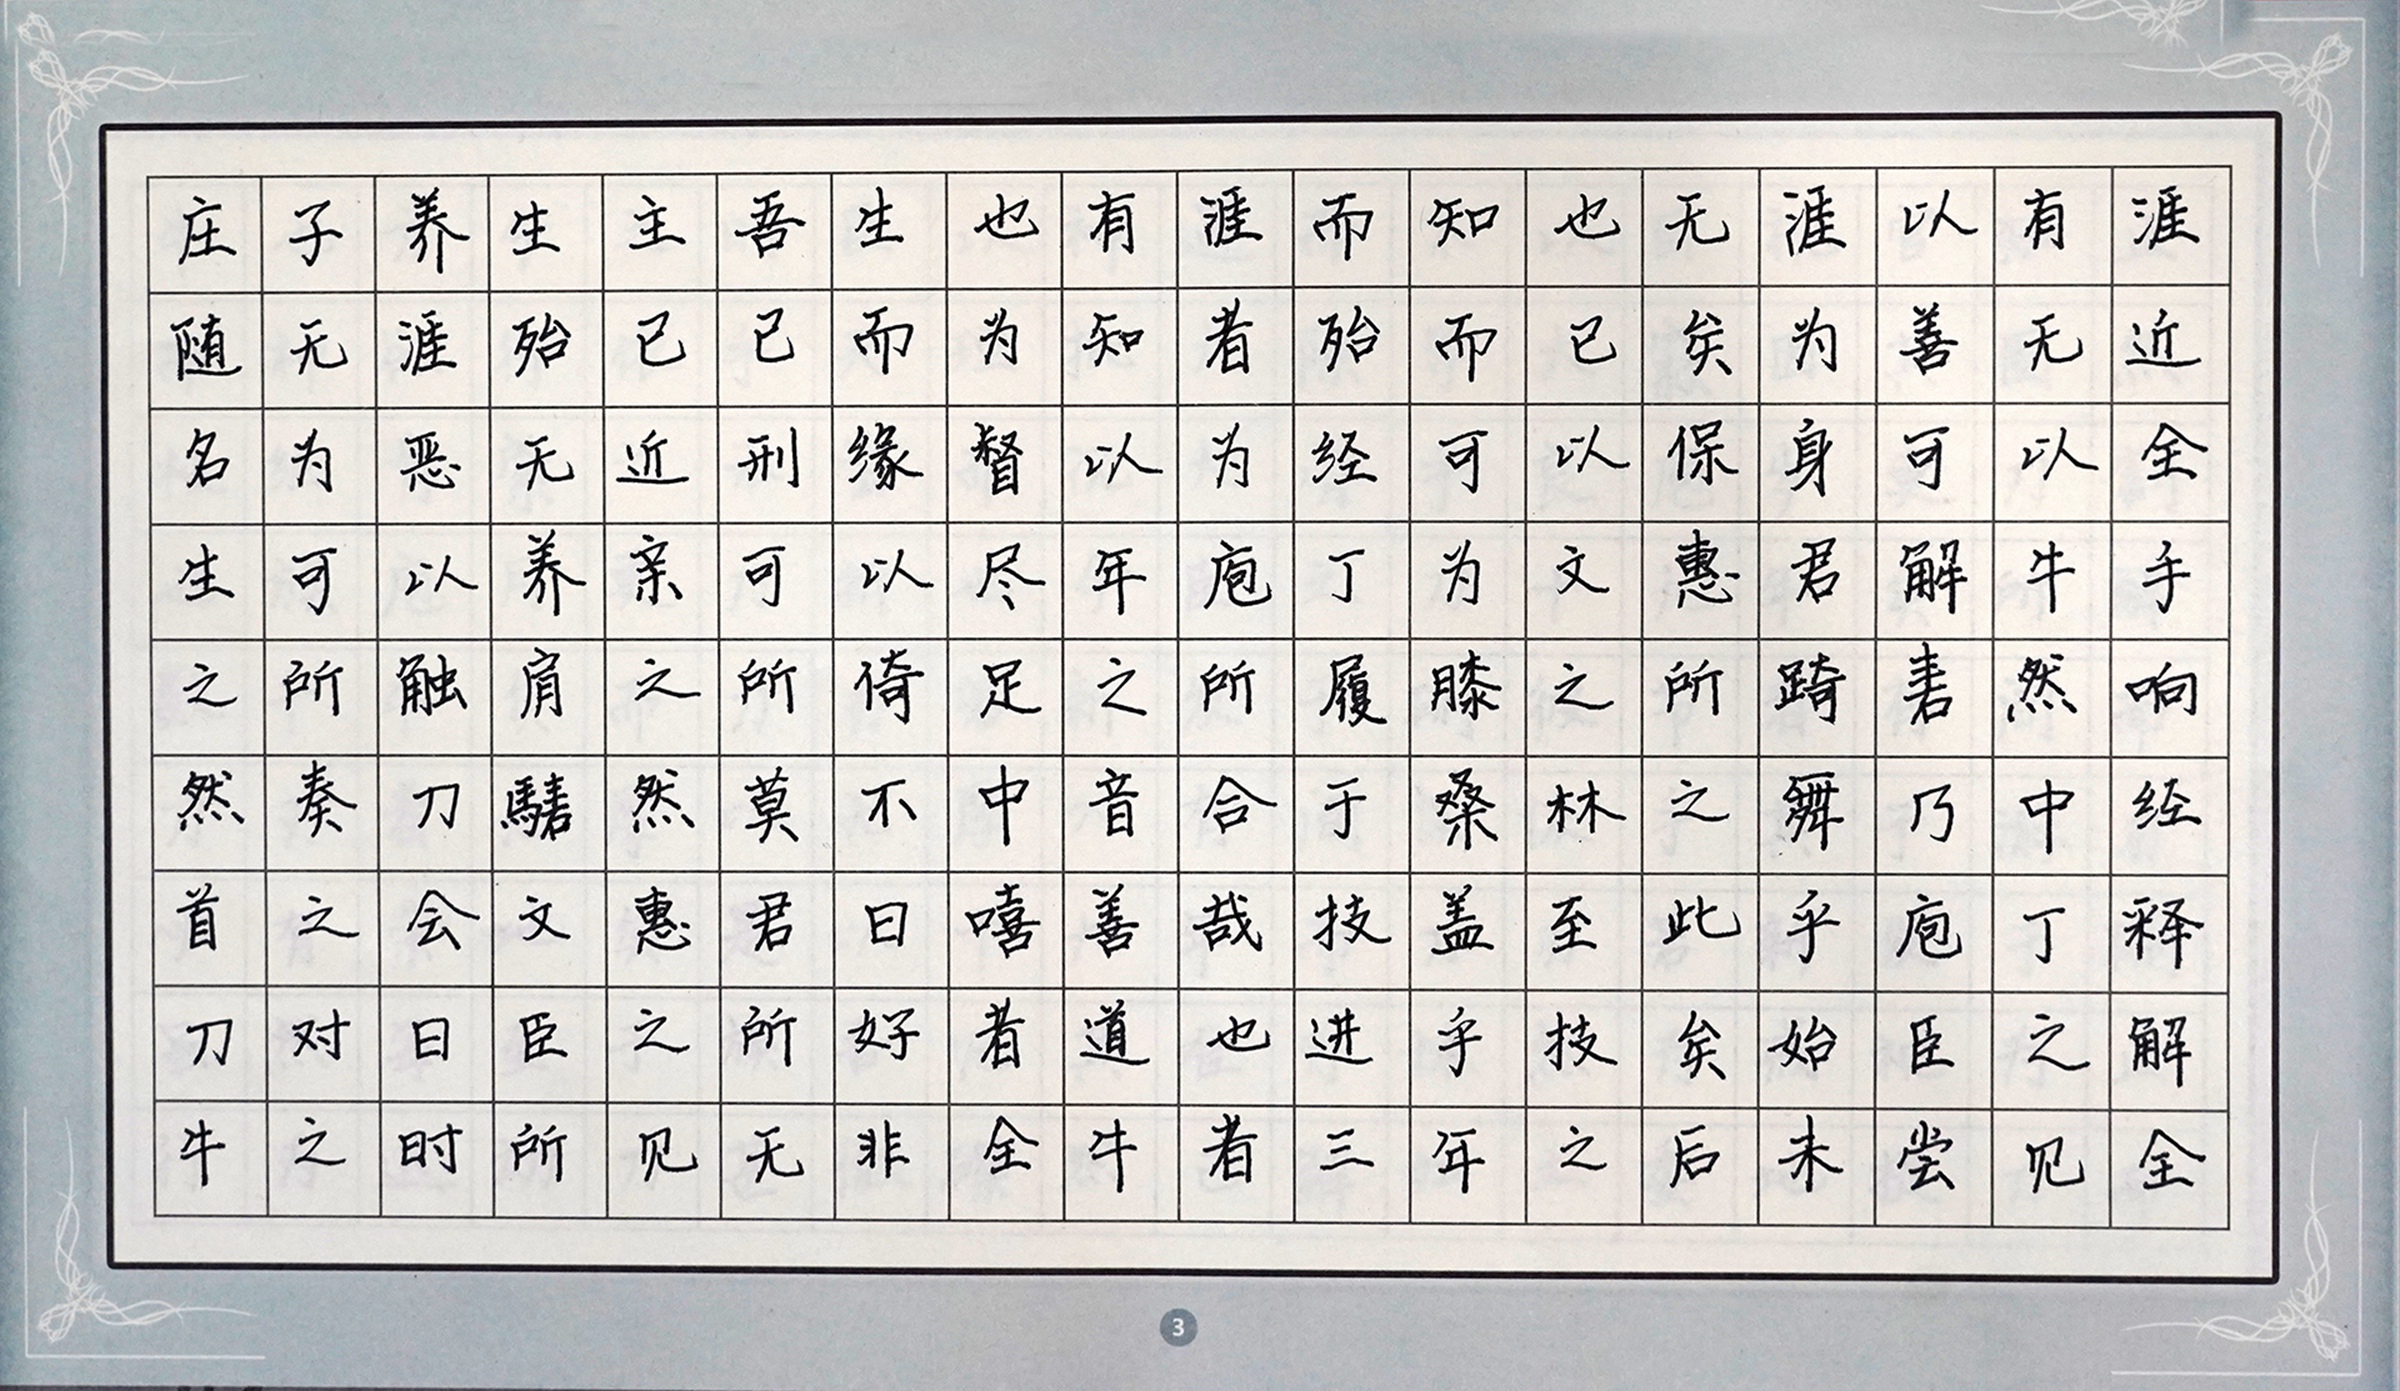 庄子养生主吾生也有涯而知也无涯以有涯
随无涯殆已已而为知者殆而已矣为善无近
名为恶无近刑缘督以为经可以保身可以全
生可以养亲可以尽年庖丁为文惠君解牛手
之所触肩之所倚足之所履膝之所踦砉然响
然奏刀騞然莫不中音合于桑林之舞乃中经
首之会文惠君曰嘻善哉技盖至此乎庖丁释
刀对曰臣之所好者道也进乎技矣始臣之解
牛之时所见无非全牛者三年之后未尝见全
3